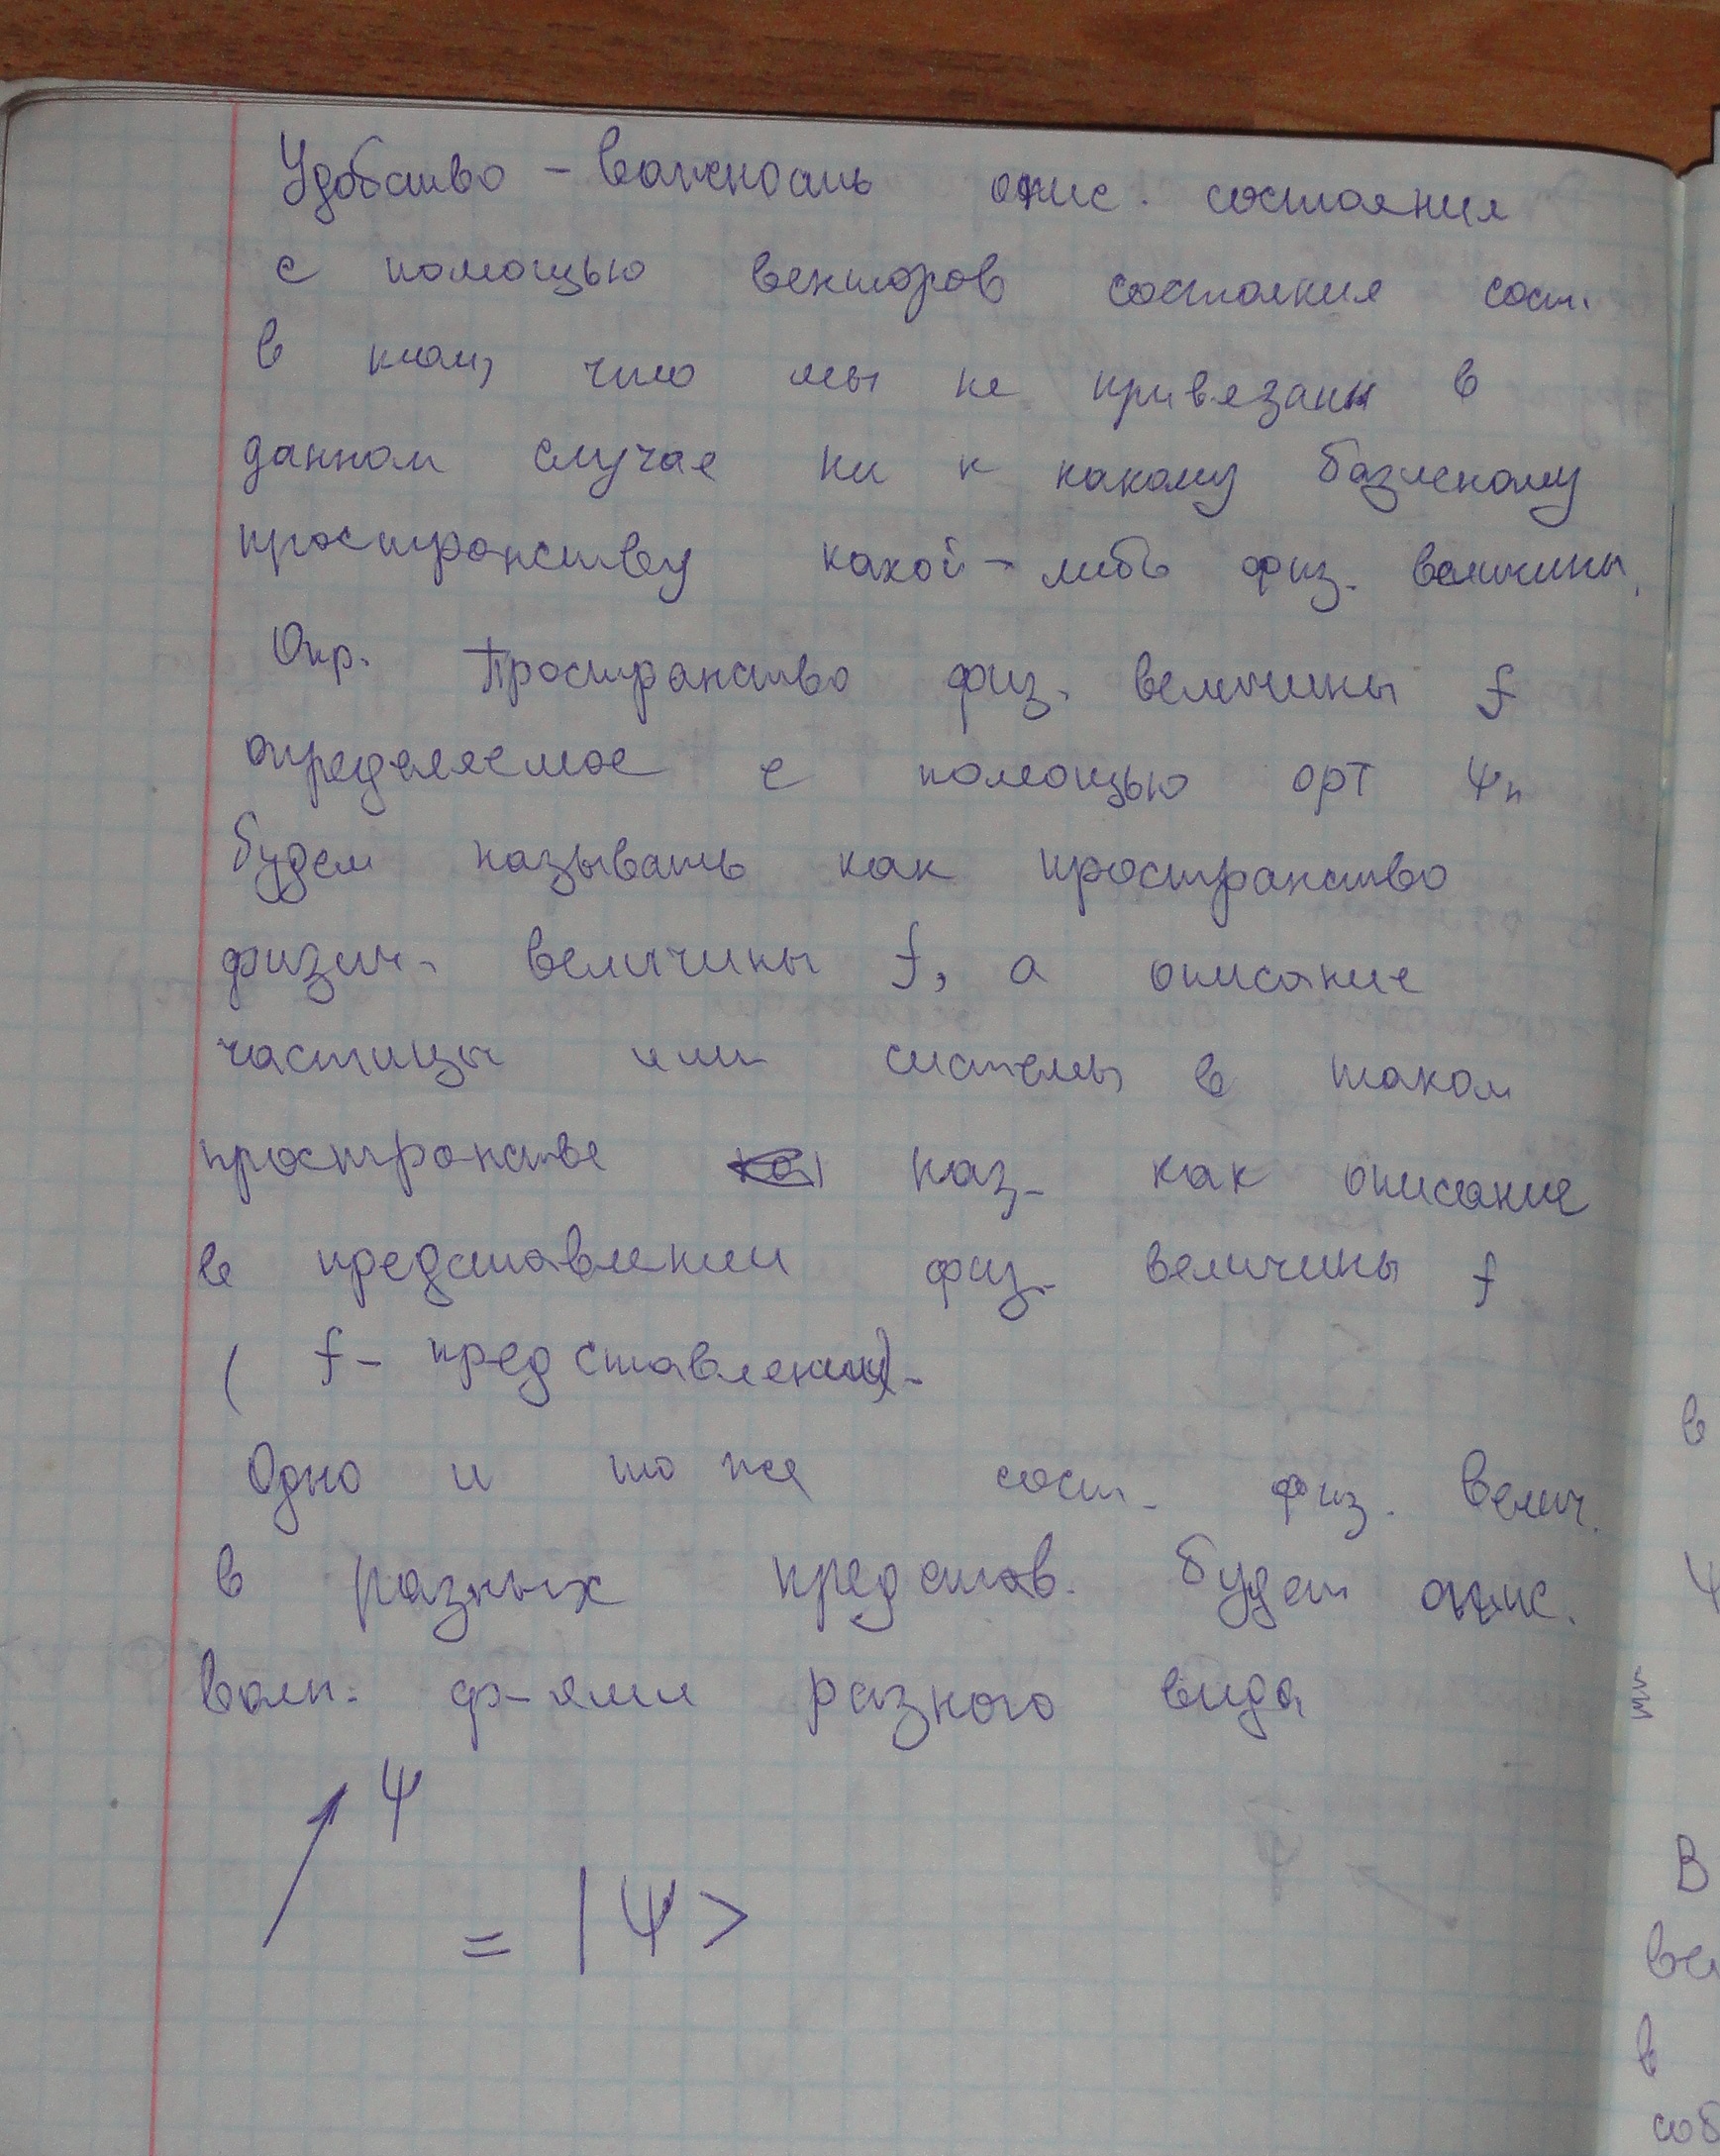 Удобство – важность опис. состояния
с помощью векторов состояния сост.
в том, что мы не привязаны в
данном случае ни к какому базисному
пространству какой-либо физ. величины.
Опр. Пространство физ. величины f
определяемое с помощью орт ψn
будем называть как пространство
физич. величины f, а описание
частицы или системы в таком
пространстве наз. как описание
в представлении физ. величины f
( f - представлении).
Одно и то же сост. физ. велич.
в разных представ. будет опис.
волн. ф-ями разного вида
ψ
= |ψ>
в
ψ
В
в